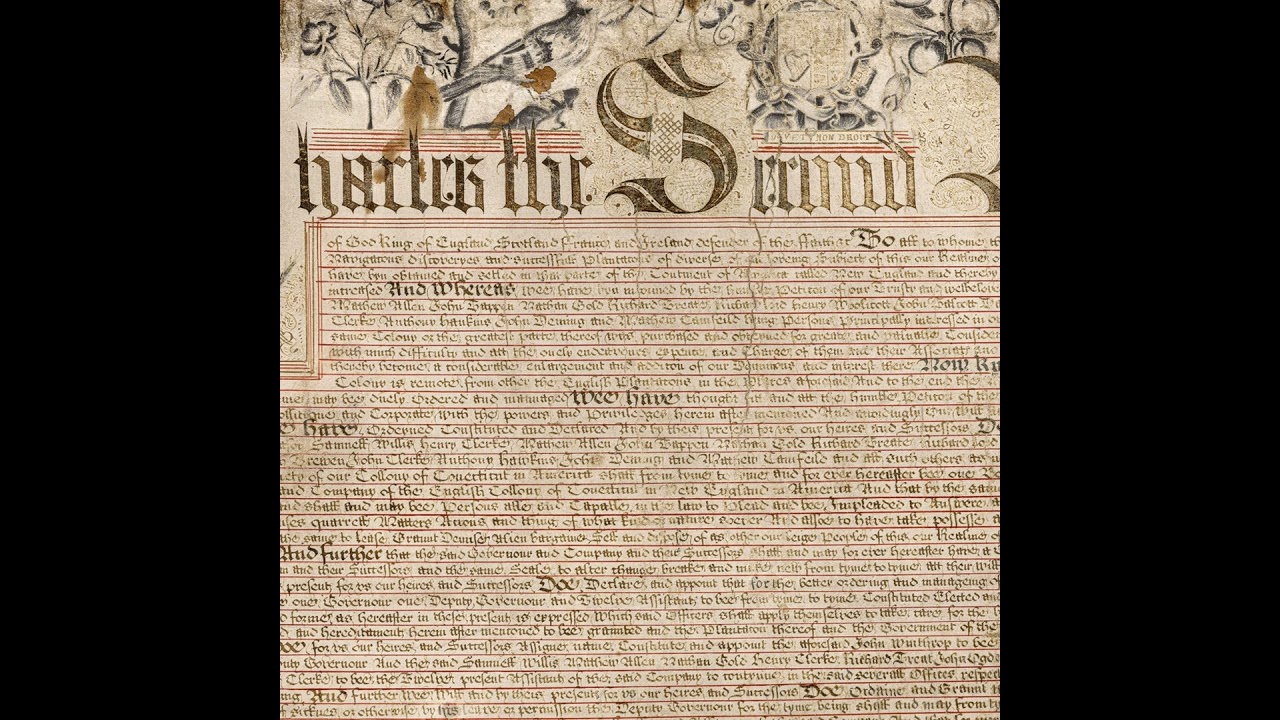 DIEV ET MON DROIT
harles the Second
of God King of England Scotland France and Ireland defender of the Faith &c To all to whome th
Navigatons discoveryes and successfull Plantatons of diverse of our loving Subiects of this our Realme o
have byn obtained and setled in that parte of the Continent of America called New England and thereby
increased And Whereas wee have byn informed by the humble Petition of our Trusty and welbelove
Mathew Allen John Tappen Nathan Gold Richard Treate Richard Lord Henry Woolicott John Talcott
Clerke Anthony Hawkins John Deming and Mathew Camfeild being Persons Principally interessed in o
same Colony or the greatest parte thereof was purchased and obteyned for greate and valuable Consider
with much difficulty and att the onely endeavours expence and Charge of them and their Associats
thereby become a considerable enlargement and addition of our Dominions and interest there Now Kn
Colony is remote from other the English Plantatons in the Places aforesaid And to the end the A
may bee duely Ordered and managed Wee have thought fit and att the humble Petition of the
and Corporate with the powers and Priviledges herein after mentioned And accordingly Our Will
have Ordeyned Constituted and Declared And by theis presents for us our heires and Successors D
Samuell Willis Henry Clerke Mathew Allen John Tappen Nathan Gold Richard Treate Richard Lord
Crewen John Clerke Anthony Hawkins John Deming and Mathew Camfeild and all such others as n
of our Collony of Conecticut in America shall from tyme to tyme and for ever hereafter bee one B
and Company of the English Collony of Conecticut in New England in America And that by the same
shall and may bee Persons able and Capable in the law to Plead and bee Impleaded to Answere a
quarrells Matters Actions and things of what kind or nature soever And alsoe to have take possesse a
the same to lease Graunt Demise Alien bargaine Sell and dispose of as other our leige People of this our Realme o
And further that the said Governour and Company and their Successors shall and may for ever hereafter have a C
and their Successors and the same Seale to alter change breake and make new from tyme to tyme att their will
present for us our heires and Successors Doe Declare and appoint that for the better ordering and manageing of
one Governour one Deputy Governour and Twelve Assistants to bee from tyme to tyme Constituted Elected and
forme as hereafter in these presents is expressed which said Officers shall apply themselves to take care for the
and hereditaments herein after mentioned to bee graunted and the Plantaton thereof and the Government of the
for us our heires and Successors Assigne name Constitute and appoint the aforesaid John Winthrop to bee
Governour And the said Samuell Willis Mathew Allen Nathan Gold Henry Clerke Richard Treat John Ogde
Clerke to bee the Twelve present Assistants of the said Company to contynue in the said severall Offices respect
And further Wee Will and by theis presents for us our heires and Successors Doe Ordaine and Graunt
sicknes or otherwise by his leave or permission the Deputy Governour for the tyme being shall and may from t